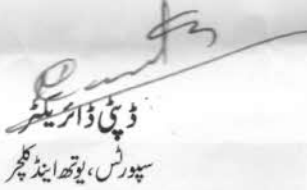 ڈپٹی ڈائریکٹر
سپورٹس، یوتھ اینڈ کلچر